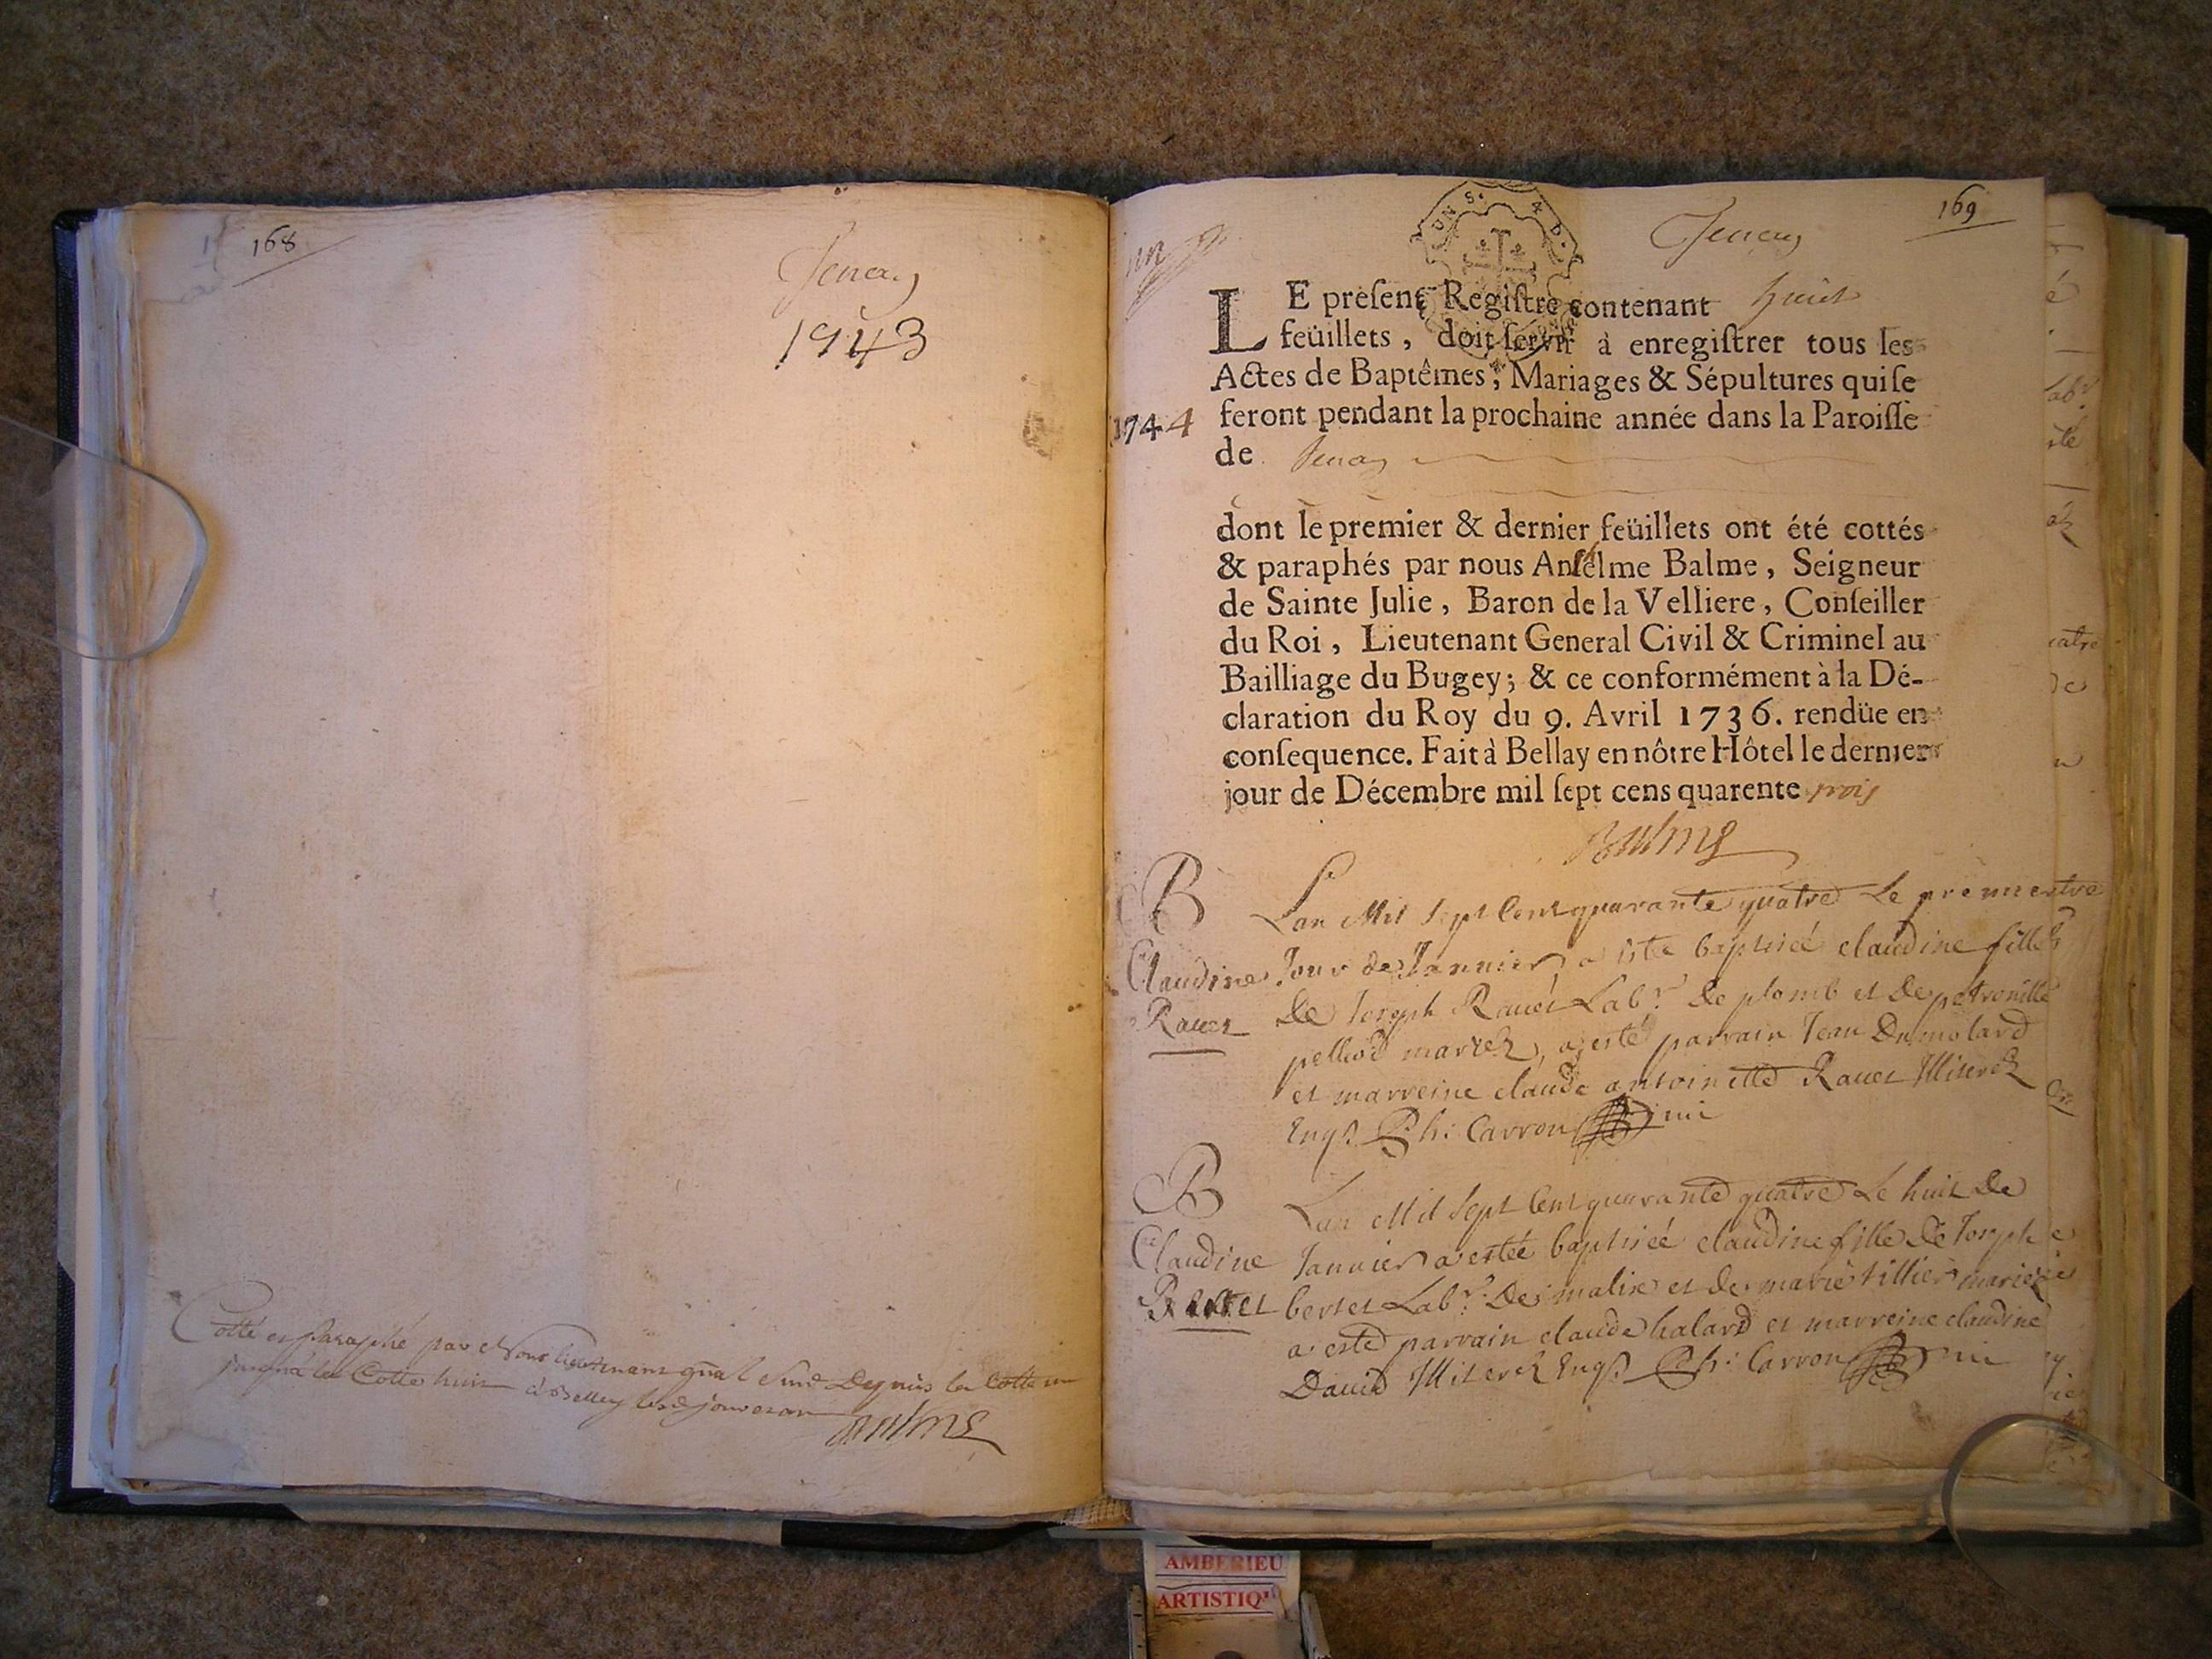 168
Tenay
1743
Cotté et Paraphé par Nous lieutenant gñal Depuis la Cotte un
jusqu'à la Cotte huit à Belley
Balme
169
Tenay
un
LE preſent Regiſtre contenant huict
feüillets, doit ſervir à enregiſtrer tous les
Actes de Baptêmes, Mariages & Sépultures qui ſe
1744 feront pendant la prochaine année dans la Paroiſſe
de Tenay
dont le premier & dernier feüillets ont été cottés
& paraphés par nous Anſelme Balme, Seigneur
de Sainte Julie, Baron de la Velliere, Conſeiller
du Roi, Lieutenant General Civil & Criminel au
Bailliage du Bugey; & ce conformément à la Dé-
claration du Roy du 9. Avril 1736. rendüe en
conſequence. Fait à Bellay en nôtre Hôtel le dernier
jour de Décembre mil ſept cens quarente trois
Balme
B
Claudine
Rauet
Lan Mil Sept Cent quarante quatre Le premier
Jour de Januier a esté baptiseé claudine fille
De Joseph Rauet Lab.r De plomb et De petronille
pelliod mariez, a esté parrain Jean Dumolard
et marreine claude antoinette Rauet Illiterez
Enqs Ph: Carron
B
Claudine
Bertet
Lan Mil Sept Cent quarante quatre Le huit De
Januier a estée baptiseé claudine fille De Joseph
bertet Lab.r De malix et de marie tillier mariez
a esté parrain claude halard et marreine claudine
Dauid Illiterez Enqs Ph: Carron
AMBERIEU
ARTISTIQU